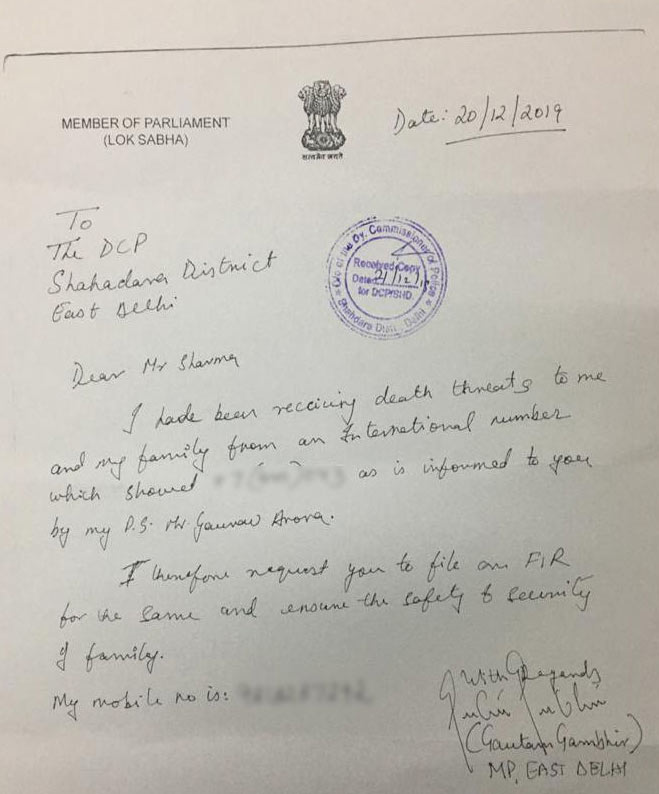 MEMBER OF PARLIAMENT
(LOK SABHA)
सत्यमेव जयते
Date: 20/12/2019
To
The DCP
Shahadara District
East Delhi
Off. of the Dy. Commissioner of Police
Received Copy
Dated 21/12/19
for DCP/SHD
Shahdara Distt. Delhi
Dear Mr Sharma
I hade been receiving death threats to me
and my family from an International number
which showed as is informed to you
by my P.S. Mr. Gaurav Arora.
I therefore request you to file an FIR
for the same and ensure the safety & security
of family.
My mobile no is:
With Regards
(Gautam Gambhir)
MP, EAST DELHI